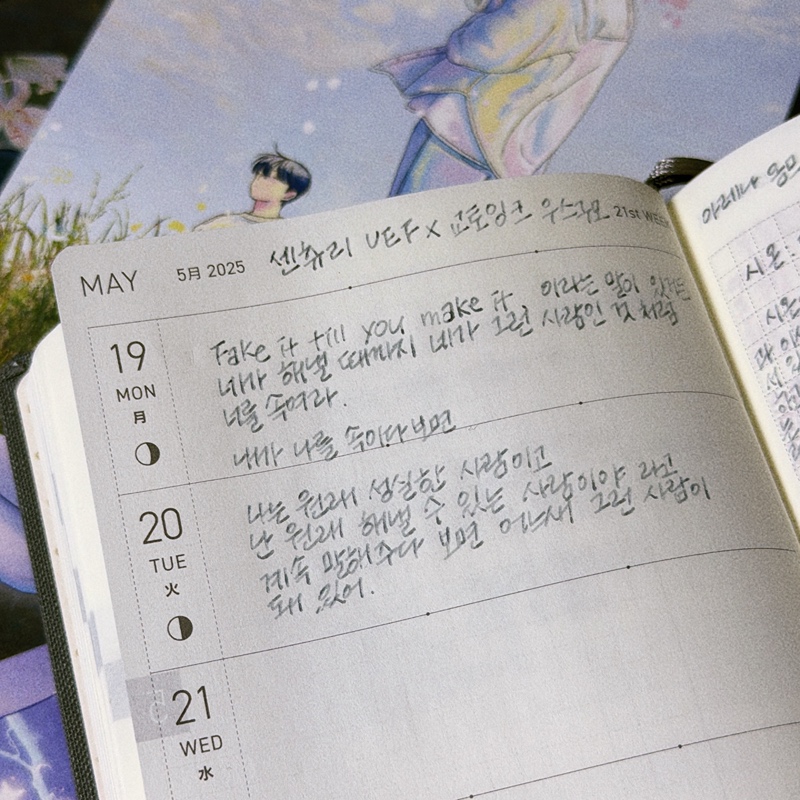 MAY 5月 2025 센츄리 UEF x 교토잉크 우스구모 21st WEEK
19 MON 月
Fake it till you make it 이라는 말이 있거든
네가 해낼 때까지 네가 그런 사람인 것처럼
너를 속여라.
내가 나를 속이다보면
20 TUE 火
나는 원래 성실한 사람이고
난 원래 해낼 수 있는 사람이야 라고
계속 말해주다 보면 어느새 그런 사람이
돼 있어.
21 WED 水
아레나
시온:
시온